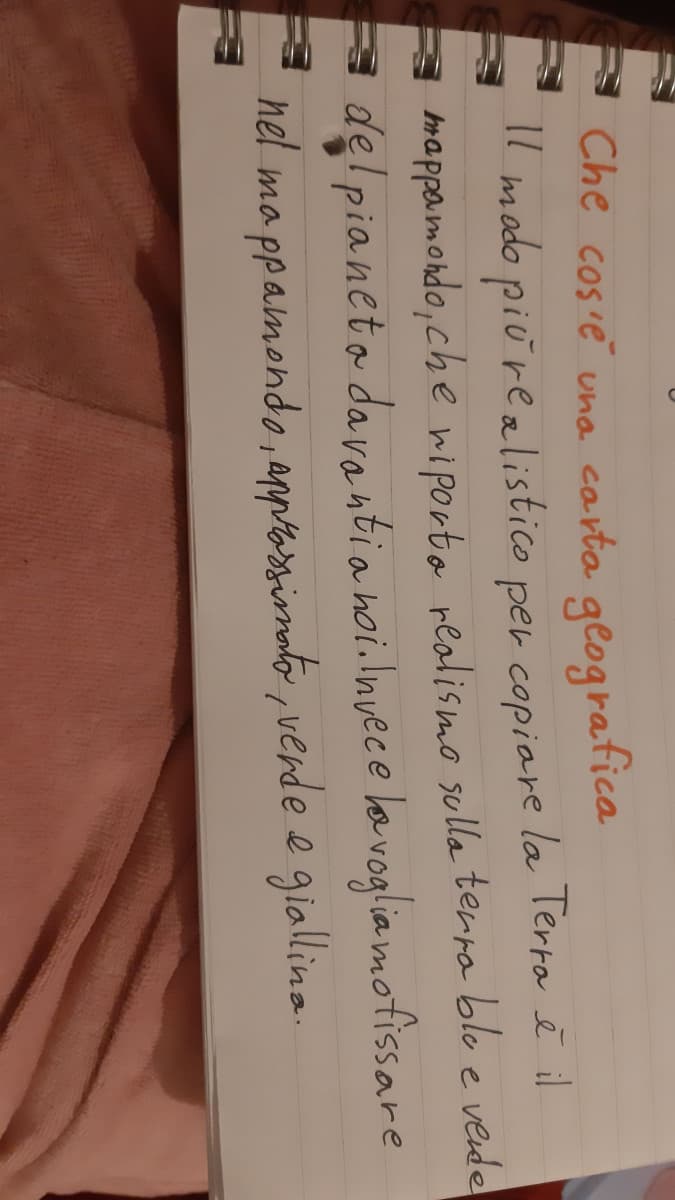 Che cos'è una carta geografica
Il modo più realistico per copiare la Terra è il
mappamondo, che riporta realismo sulla terra blu e verde
del pianeta davanti a noi. Invece la vogliamo fissare
nel mappamondo, approssimata, verde e giallina.